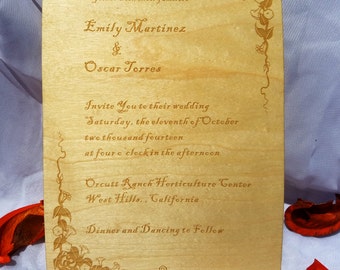 Emily Martinez
&
Oscar Torres
Invite You to their wedding
Saturday, the eleventh of October
two thousand fourteen
at four o'clock in the afternoon
Orcutt Ranch Horticulture Center
West Hills, California
Dinner and Dancing to Follow